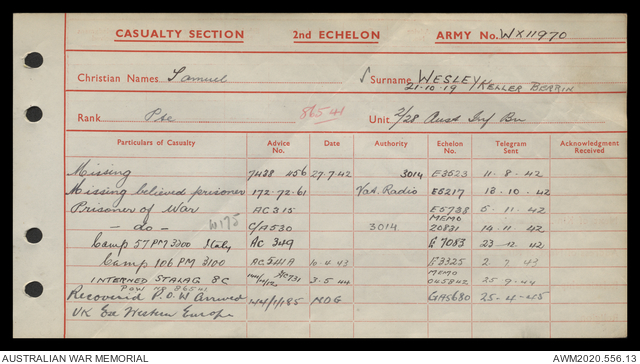 CASUALTY SECTION 2nd ECHELON ARMY No. WX11970
Christian Names Samuel Surname WESLEY
21.10.19 KELLER BERRIN
Rank Pte 86541 Unit 2/28 Aust Inf Bn
Particulars of Casualty Advice No. Date Authority Echelon No. Telegram Sent Acknowledgment Received
Missing 7438 456 27.7.42 3014 E3523 11-8-42
Missing believed prisoner 172.72.61 Vat. Radio E5217 18-10-42
Prisoner of War AC315 E5738 5-11-42
- do - W175 C/A530 3014 MEMO 20831 14-11-42
Camp 57 PM 3200 Italy AC 349 G 7083 23-12-42
Camp 106 PM 3100 AC541A 10.4.43 G3325 2.7.43
INTERNED STALAG 8C AC731 3.5.44 MEMO 045842 25-9-44
POW No 86541
Recovered P.O.W Arrived 185 GA5680 25-4-45
UK Ex Western Europe
AUSTRALIAN WAR MEMORIAL AWM2020.556.13